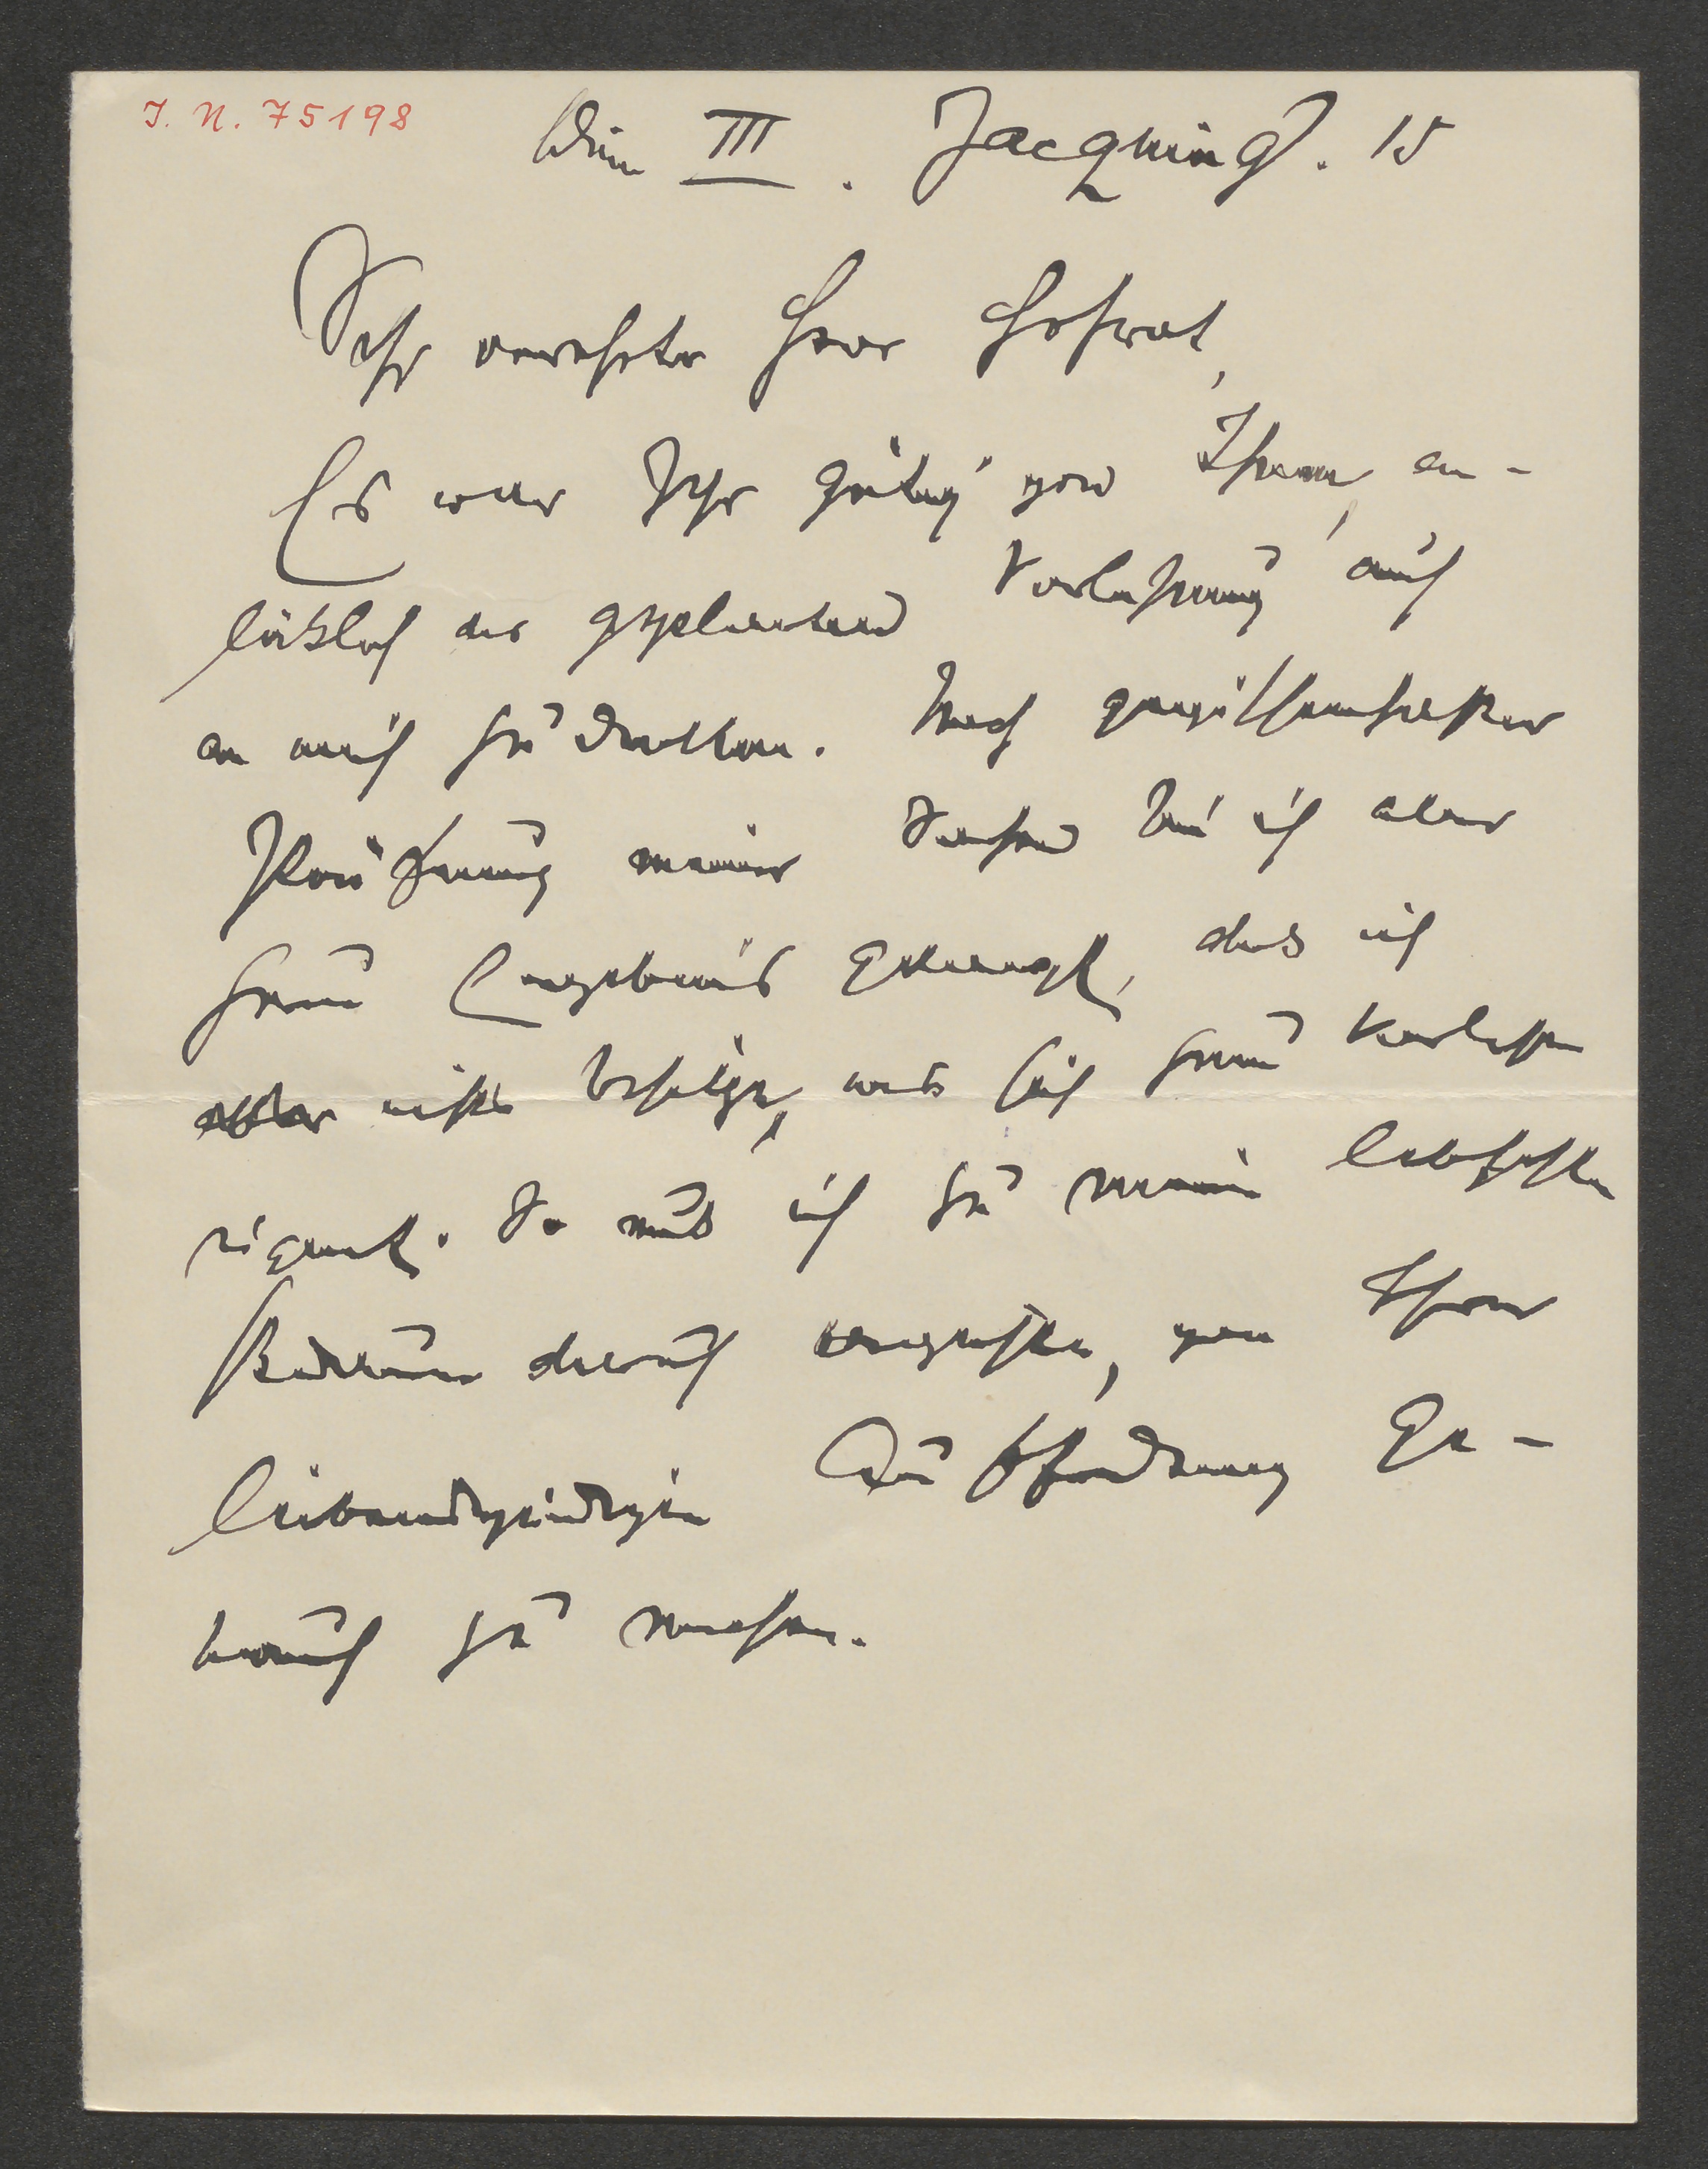 I. N. 75198
Wien III. Jacquing. 15
Sehr verehrter Herr Hofrat,
Es war sehr gütig von Ihnen, an-
läßlich der geplanten Vorlesung auch
an mich zu denken. Nach gewissenhafter
Prüfung meiner Sachen bin ich aber
zum Ergebnis gelangt, das ich
nichts besitze, was sich zum Vorlesen
eignet. So muß ich zu meinem lebhaften
Bedauern darauf verzichten, von Ihrer
liebenswürdigen Aufforderung Ge-
brauch zu machen.